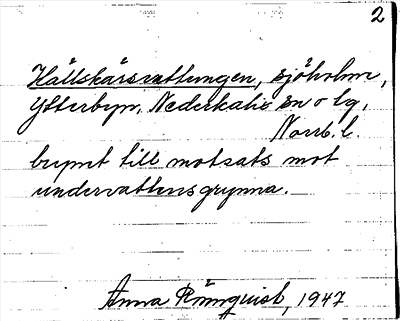 2
Hällskärsvattungen, sjöholme,
Ytterbyn, Nederkalix sn o lg,
Norrb. l.
benymt till motsats mot
undervattensgrynna.
Anna Rönnquist, 1947